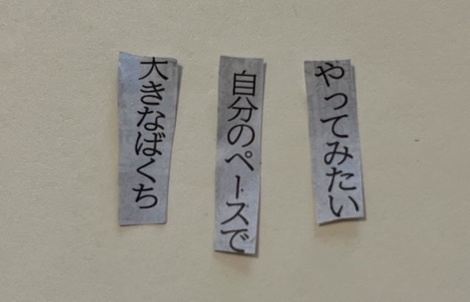 やってみたい
自分のペースで
大きなばくち